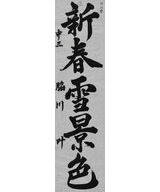 新春雪景色
中三 脇川 叶